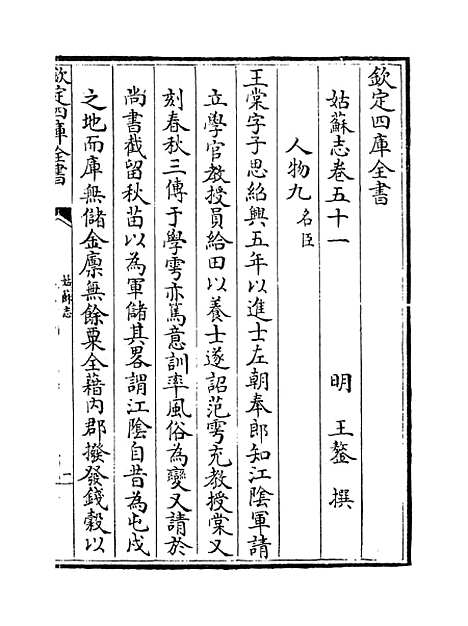 欽定四庫全書
姑蘇志卷五十一
明 王鏊 撰
人物九 名臣
王棠字子思紹興五年以進士左朝奉郎知江陰軍請
立學官教授員給田以養士遂詔范雩充教授棠又
刻春秋三傳于學雩亦篤意訓率風俗為變又請於
尚書截留秋苗以為軍儲其畧謂江陰自昔為屯戍
之地而庫無儲金廪無餘粟全藉内郡撥發錢穀以
欽定四庫全書
姑蘇志
一